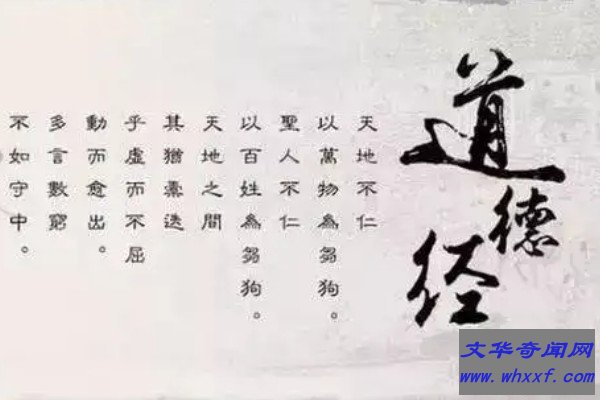 道德经
天地不仁
以萬物為芻狗。
聖人不仁
以百姓為芻狗。
天地之間
其猶橐迭
乎虛而不屈
動而愈出。
多言數窮
不如守中。
文华奇闻网
www.whxxf.com